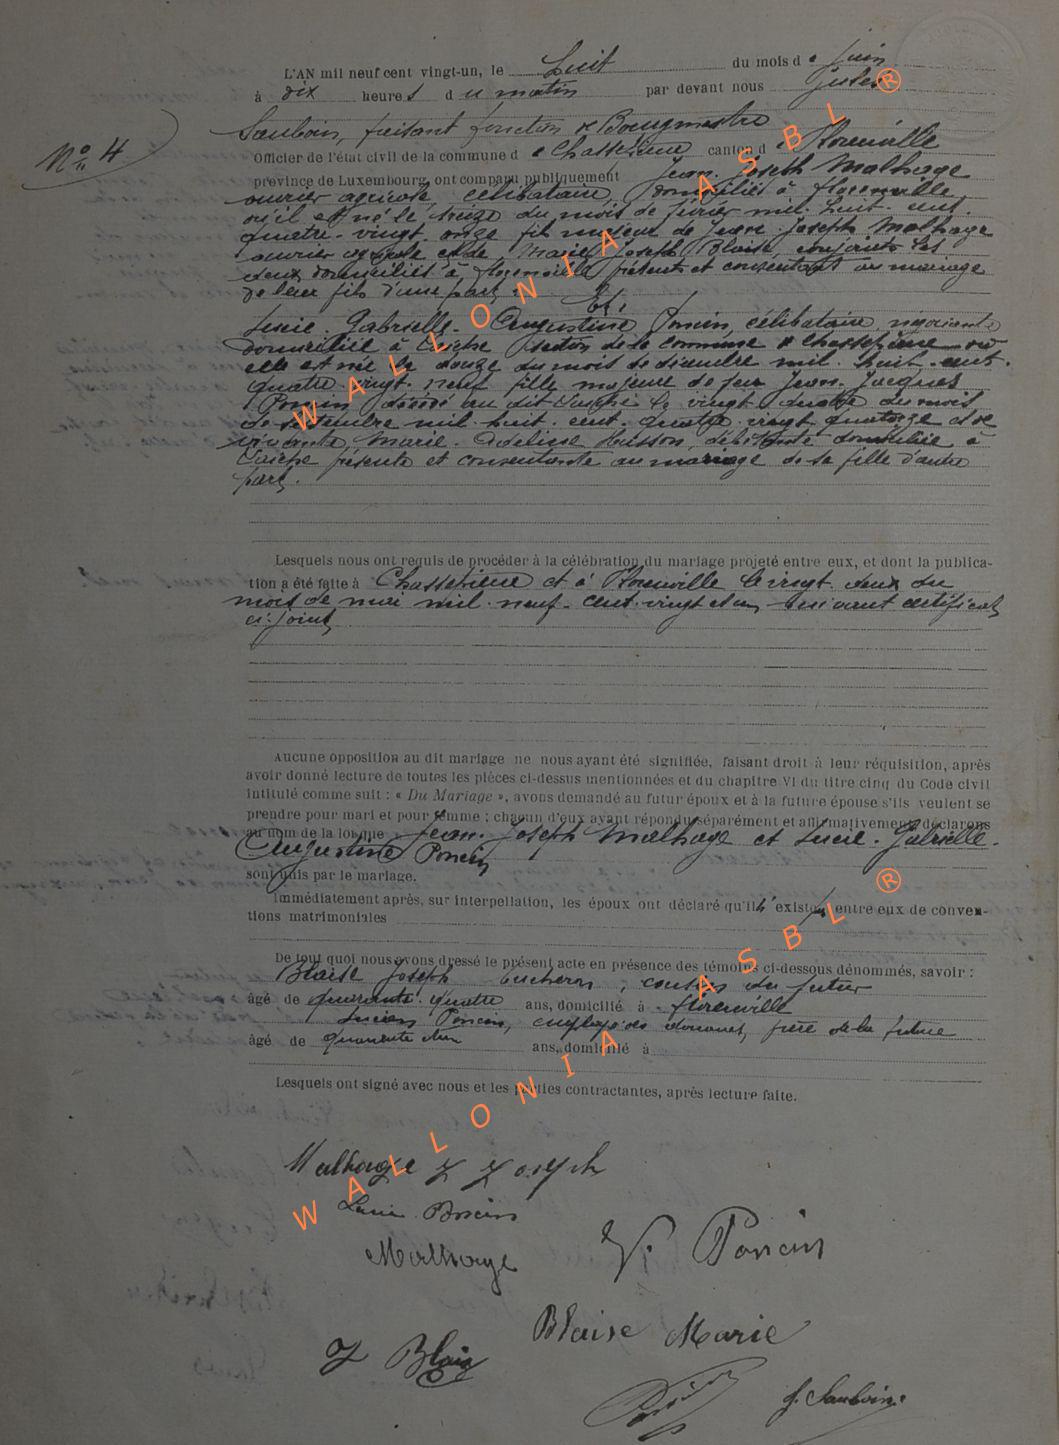 L'AN mil neuf cent vingt-un, le huit du mois de juin
à dix heures du matin par devant nous Jules
Sauboin, faisant fonction de Bourgmestre
N° 4
Officier de l'état civil de la commune de Chassepierre canton de Florenville
province de Luxembourg, ont comparu publiquement Jean Joseph Malhage
ouvrier agricole, célibataire, domicilié à Florenville
où il est né le treize du mois de février mil huit cent
quatre-vingt onze fils majeur de Jean Joseph Malhage
ouvrier agricole et de Marie Joseph Blaise, conjoints les
deux domiciliés à Florenville présents et consentants au mariage
de leur fils d'une part,
Et,
Lucie Gabrielle Augustine Poncin, célibataire, négociante
domiciliée à section de la commune de Chassepierre où
elle est née le douze du mois de décembre mil huit cent
quatre vingt neuf fille majeure de feu Jean Jacques
Poncin décédé au dit le vingt quatre du mois
de septembre mil huit cent quatre vingt quatorze et de
vivante Marie Adeline Husson débitante domiciliée à
présente et consentante au mariage de sa fille d'autre
part.
Lesquels nous ont requis de procéder à la célébration du mariage projeté entre eux, et dont la publica-
tion a été faite à Chassepierre et à Florenville le vingt deux du
mois de mai mil neuf cent vingt et un, suivant certificat
ci-joint
Aucune opposition au dit mariage ne nous ayant été signifiée, faisant droit à leur réquisition, après
avoir donné lecture de toutes les pièces ci-dessus mentionnées et du chapitre VI du titre cinq du Code civil
intitulé comme suit : « Du Mariage », avons demandé au futur époux et à la future épouse s'ils veulent se
prendre pour mari et pour femme ; chacun d'eux ayant répondu séparément et affirmativement déclarons
au nom de la loi que Jean Joseph Malhage et Lucie Gabrielle
Augustine Poncin
sont unis par le mariage.
Immédiatement après, sur interpellation, les époux ont déclaré qu'il existe entre eux de conven-
tions matrimoniales
De tout quoi nous avons dressé le présent acte en présence des témoins ci-dessous dénommés, savoir :
Blaise Joseph bucheron, cousin du futur
âgé de quarante quatre ans, domicilié à Florenville
Lucien Poncin, employé des douanes, frère de la future
âgé de quarante et un ans, domicilié à
Lesquels ont signé avec nous et les parties contractantes, après lecture faite.
Malhage J Joseph
Lucie Poncin
Malhage V. Poncin
Blaise Marie
J Blaise
J. Sauboin
WALLONIA ASBL ®
WALLONIA ASBL ®